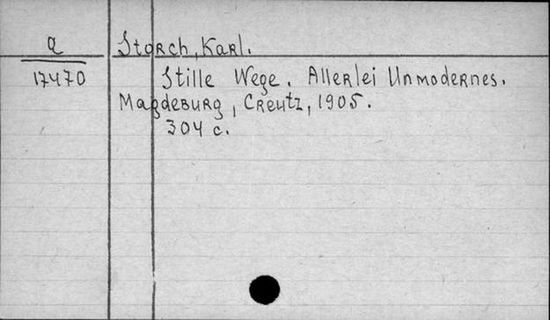 a
17470
Storch, Karl.
Stille Wege. Allerlei Unmodernes.
Magdeburg, Creutz, 1905.
304 c.